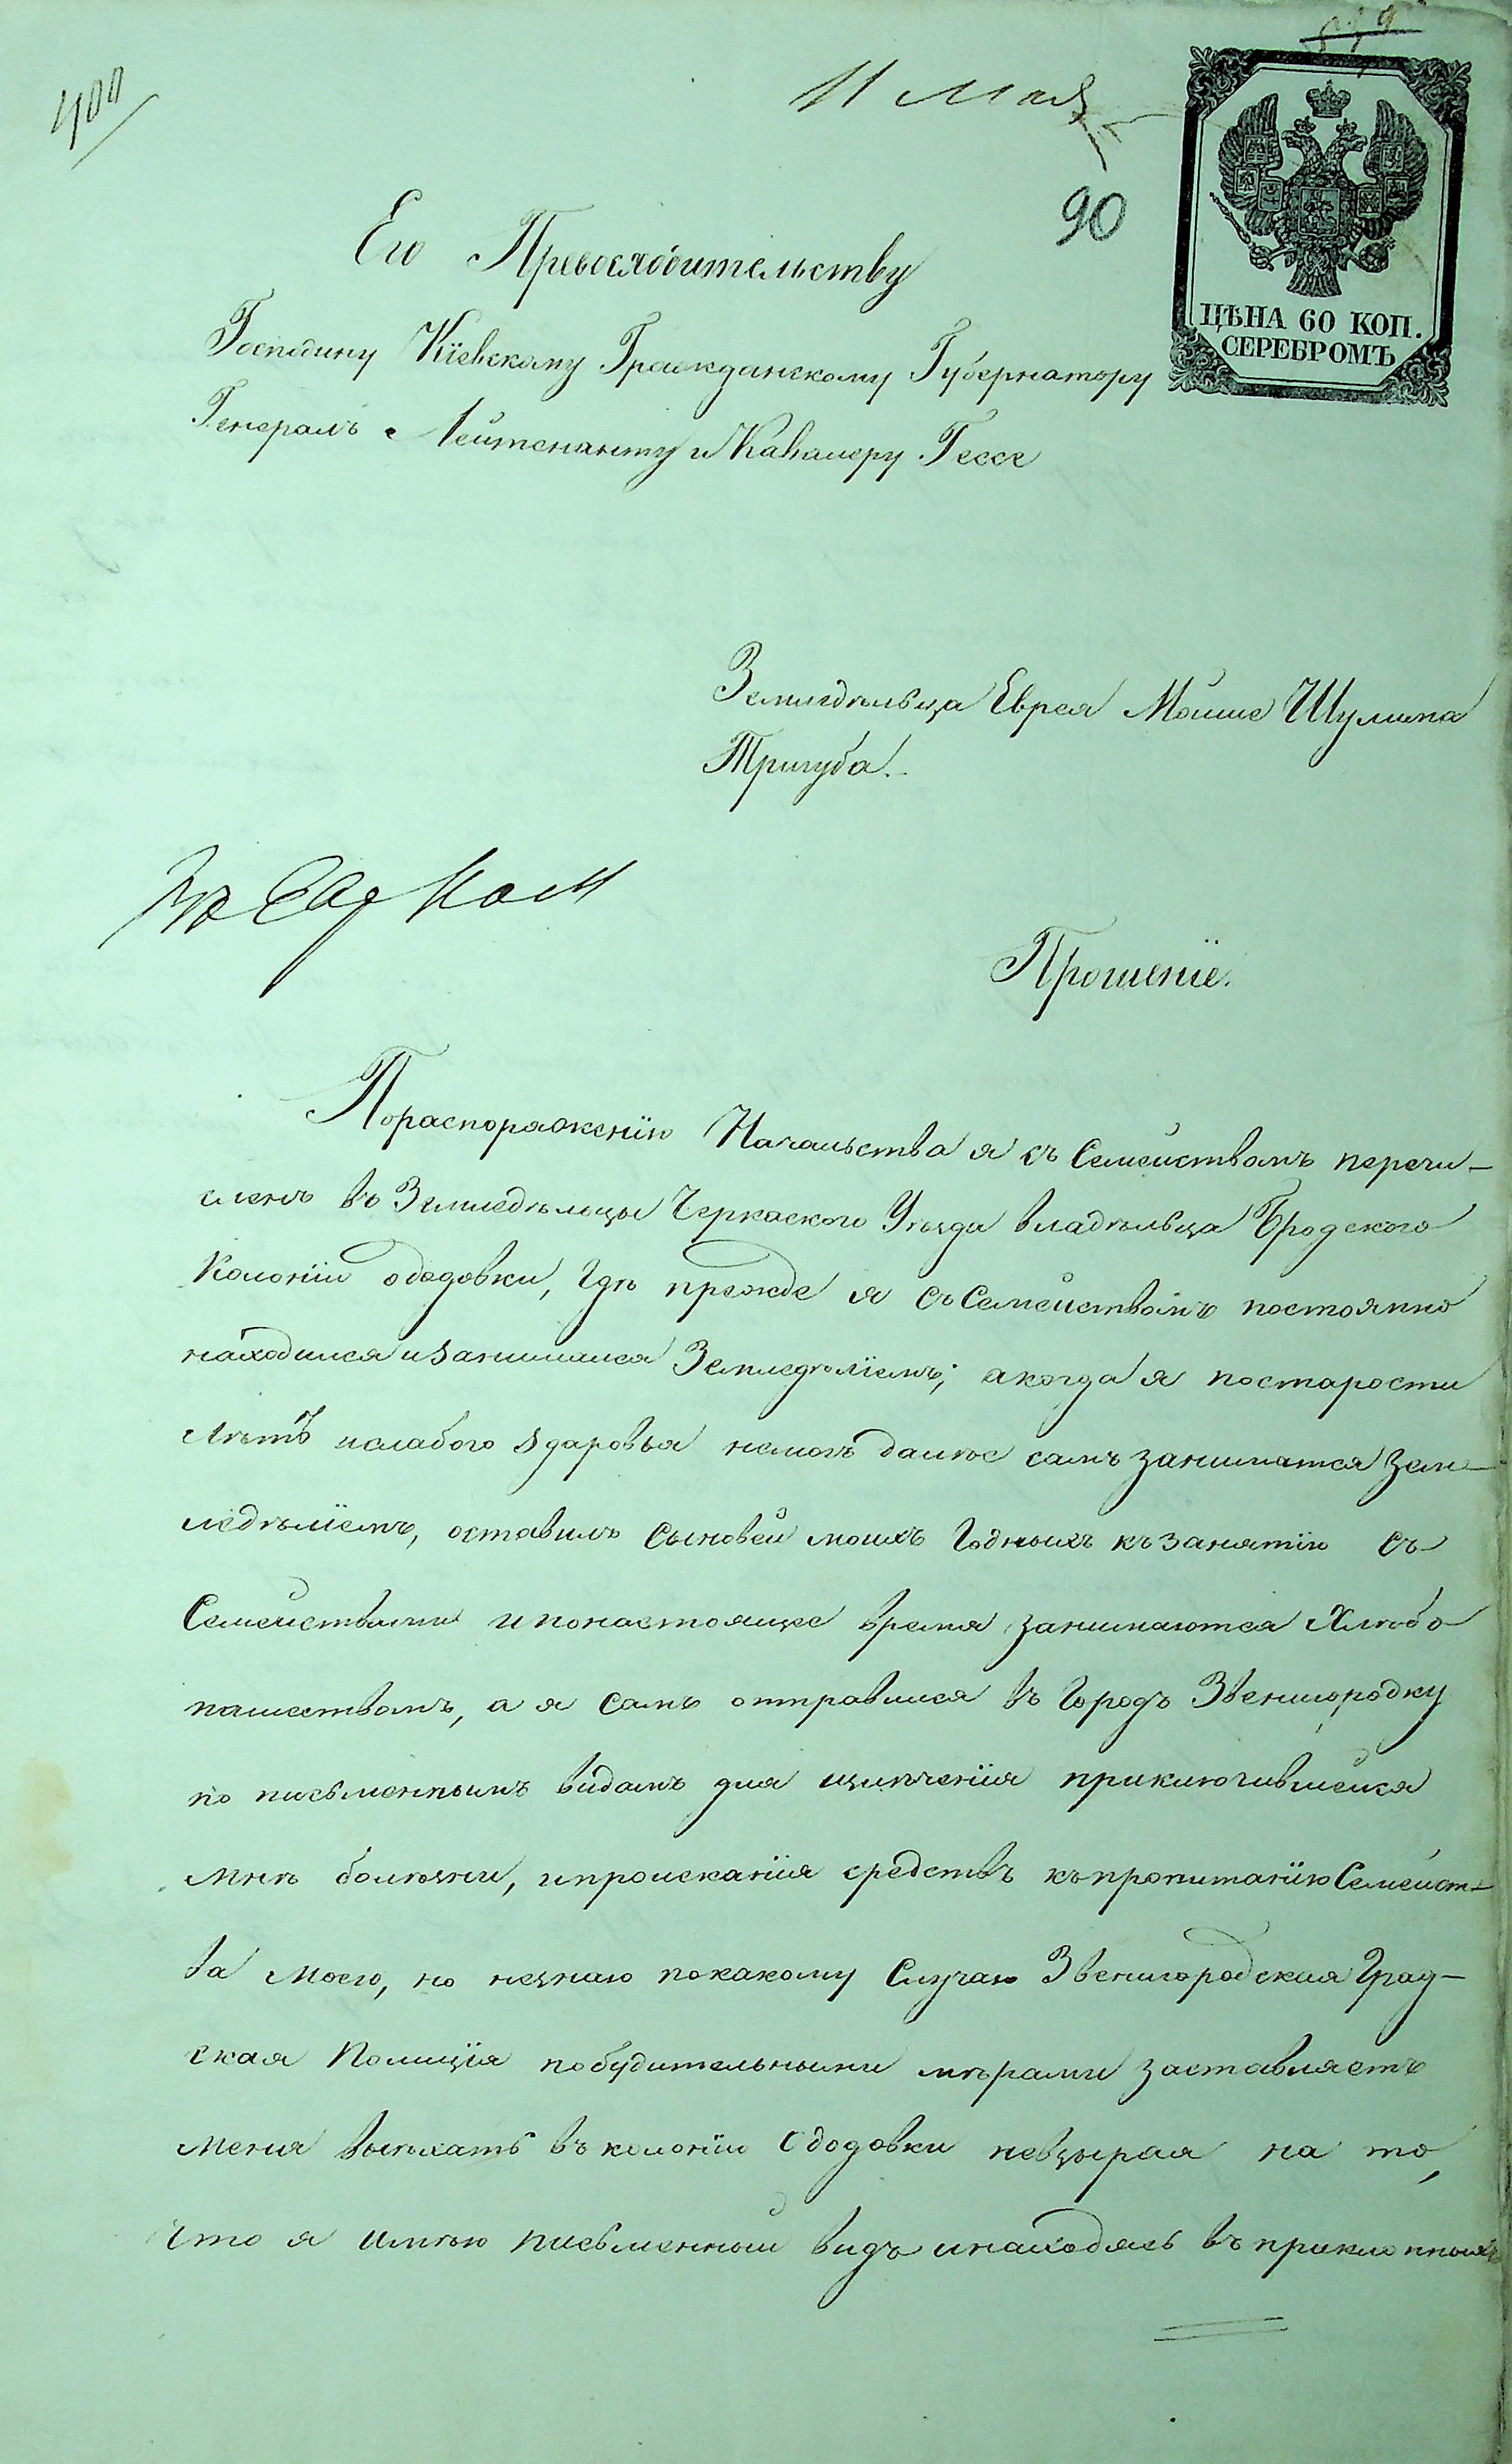 400
11 Мая
90
ЦѢНА 60 КОП.
СЕРЕБРОМЪ
Его Превосходительству
Господину Кіевскому Гражданскому Губернатору
Генералъ Лейтенанту и Кавалеру Гессе
Земледѣльца Еврея Мошие Шулима
Тригуба.
Прошеніе.
Пораспоряженію Начальства я съ Семействомъ перечи-
сленъ въ Земледѣльцы Черкаского Уѣзда владѣльца Бродского
Колоніи ободовки, гдѣ прежде я съ Семействомъ постоянно
находился изанимался Земледѣліемъ; акогда я постарости
лѣтъ ислабого здаровья немогъ далѣе самъ заниматся Зем-
ледѣліемъ, оставилъ Сыновей моихъ годныхъ къ занятію съ
Семействами ипонастоящее время занимаются Хлѣбо
пашествомъ, а я Самъ отправился въ Городъ Звенигородку
по письменнымъ видамъ для излѣченія приключившейся
мнѣ болѣзни, ипроисканія средствъ къпропитанію Семейст-
ва моего, но незнаю покакому Случаю Звенигородская Град-
ская Полиція побудительными мѣрами заставляетъ
меня выѣхать въ колонію Ободовки невзырая на то,
что я имѣю письменный видъ инаходясь въ приклонныхъ